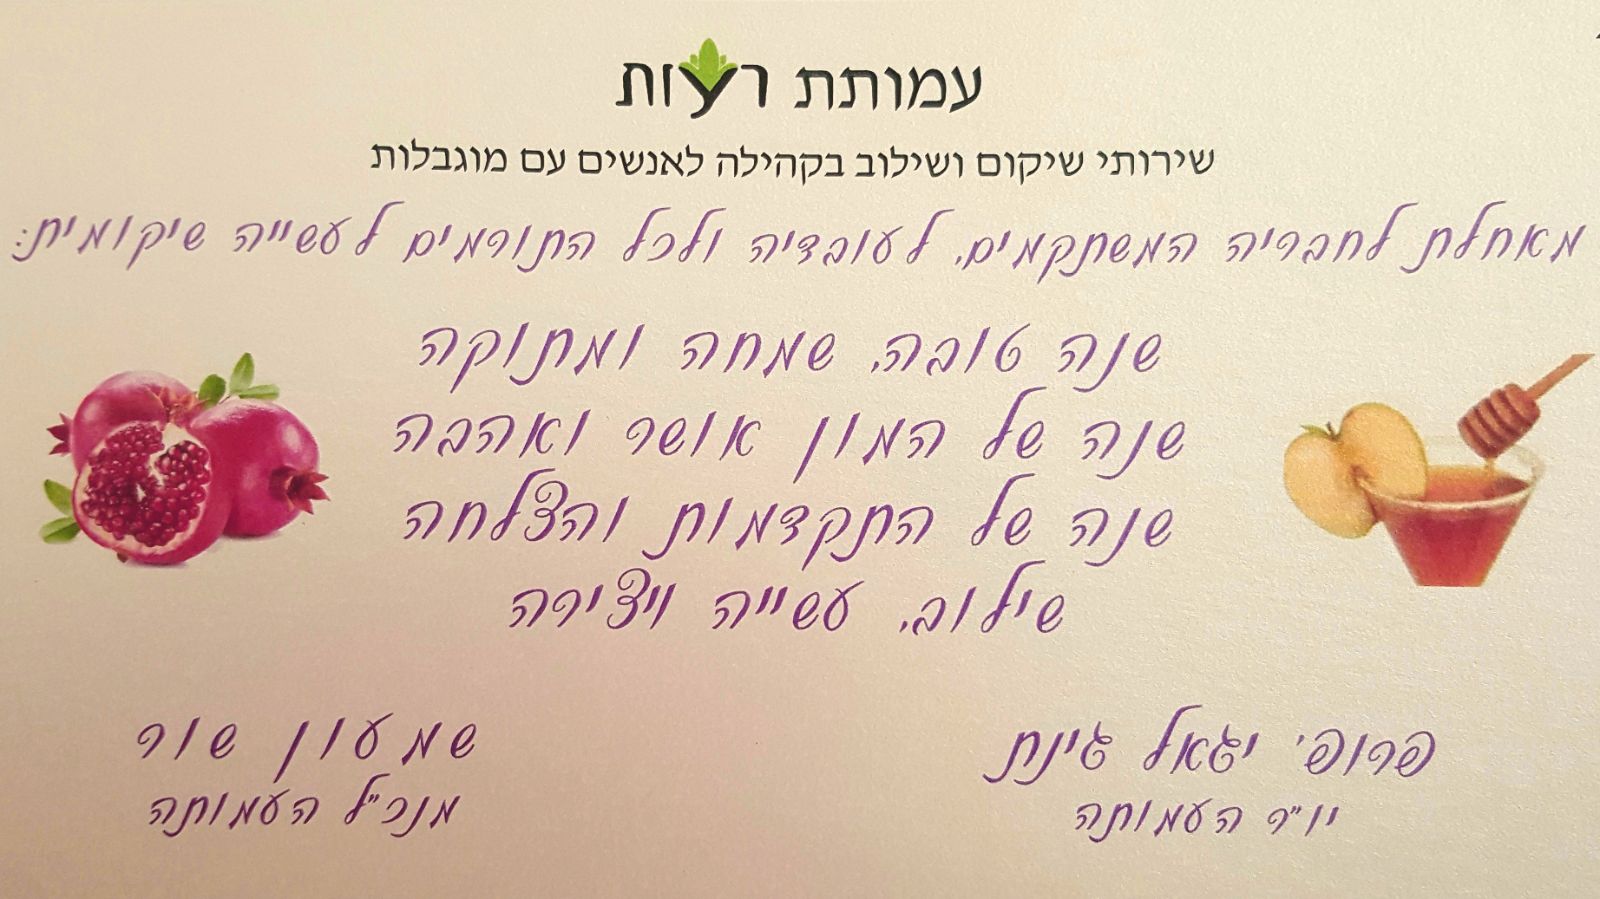 עמותת רעות
שירותי שיקום ושילוב בקהילה לאנשים עם מוגבלות
מאחלת לחבריה המשתקמים, לעובדיה ולכל התורמים לעשייה שיקומית:
שנה טובה, שמחה ומתוקה
שנה של המון אושר ואהבה
שנה של התקדמות והצלחה
שילוב, עשייה ויצירה
פרופ' יגאל גינת
יו"ר העמותה
שמעון שור
מנכ"ל העמותה